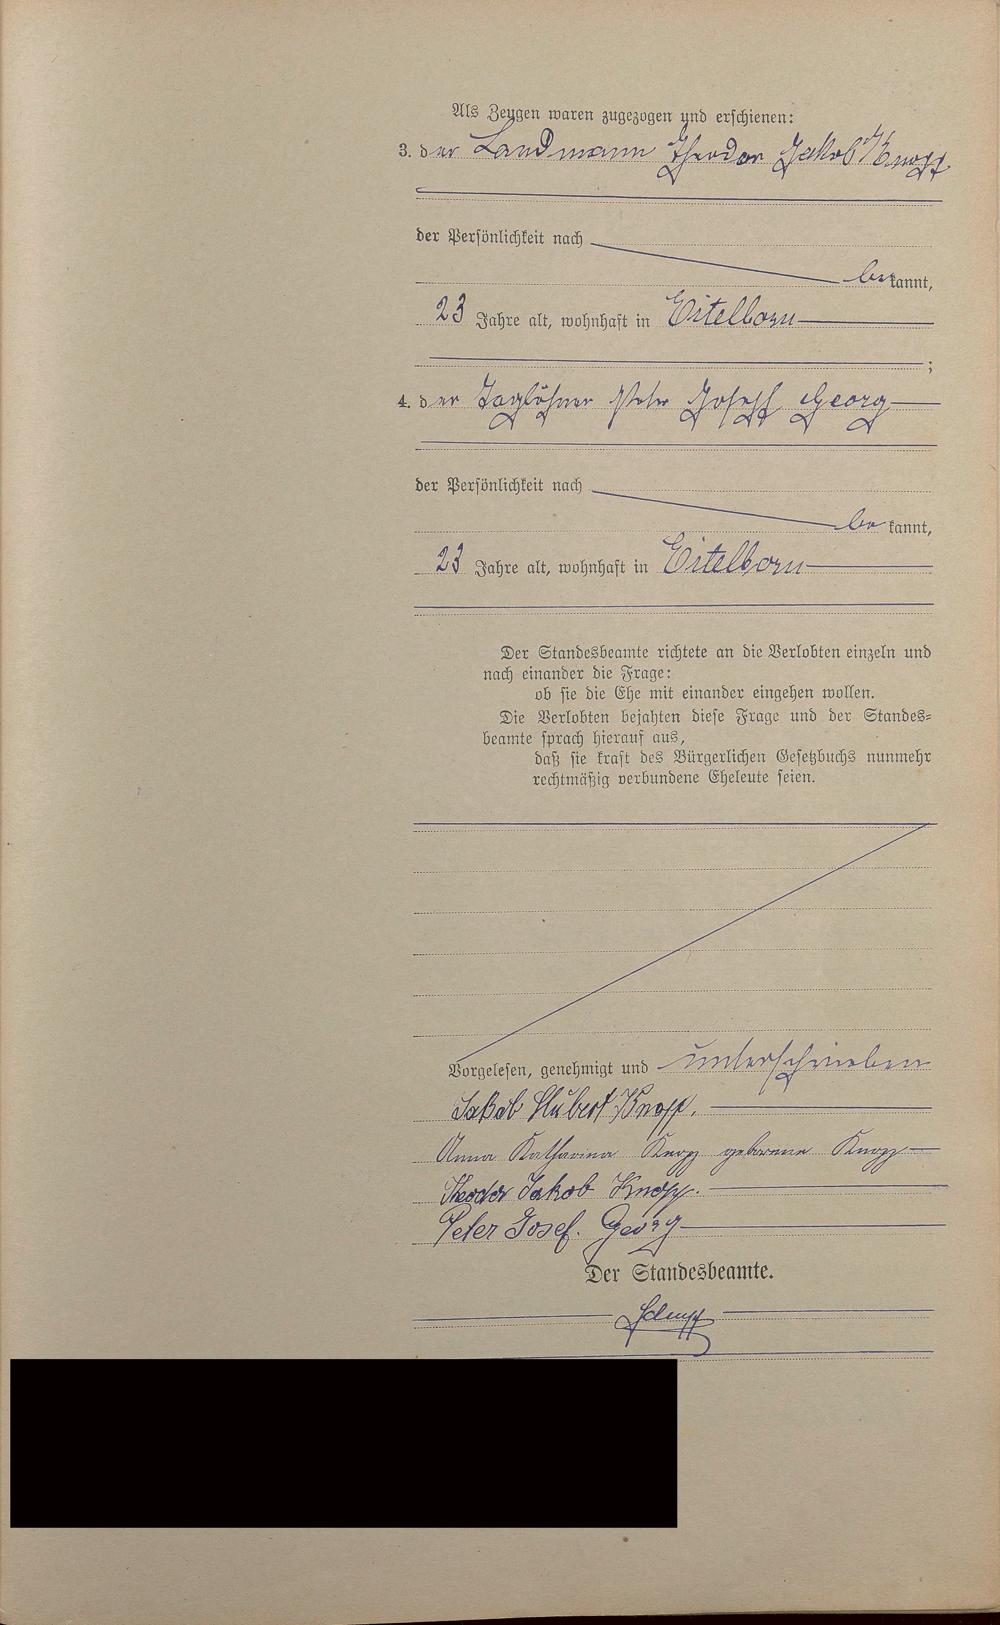 Als Zeugen waren zugezogen und erschienen:
3. der Landmann Theodor Jakob Knopp
der Persönlichkeit nach
bekannt,
23 Jahre alt, wohnhaft in Eitelborn
;
4. der Taglöhner Peter Joseph Georg
der Persönlichkeit nach
bekannt,
23 Jahre alt, wohnhaft in Eitelborn
Der Standesbeamte richtete an die Verlobten einzeln und
nach einander die Frage:
ob sie die Ehe mit einander eingehen wollen.
Die Verlobten bejahten diese Frage und der Standes-
beamte sprach hierauf aus,
daß sie kraft des Bürgerlichen Gesetzbuchs nunmehr
rechtmäßig verbundene Eheleute seien.
Vorgelesen, genehmigt und unterschrieben
Jakob Hubert Knopp.
Anna Katharina Knopp geborene Knopp
Theodor Jakob Knopp.
Peter Josef. Georg
Der Standesbeamte.